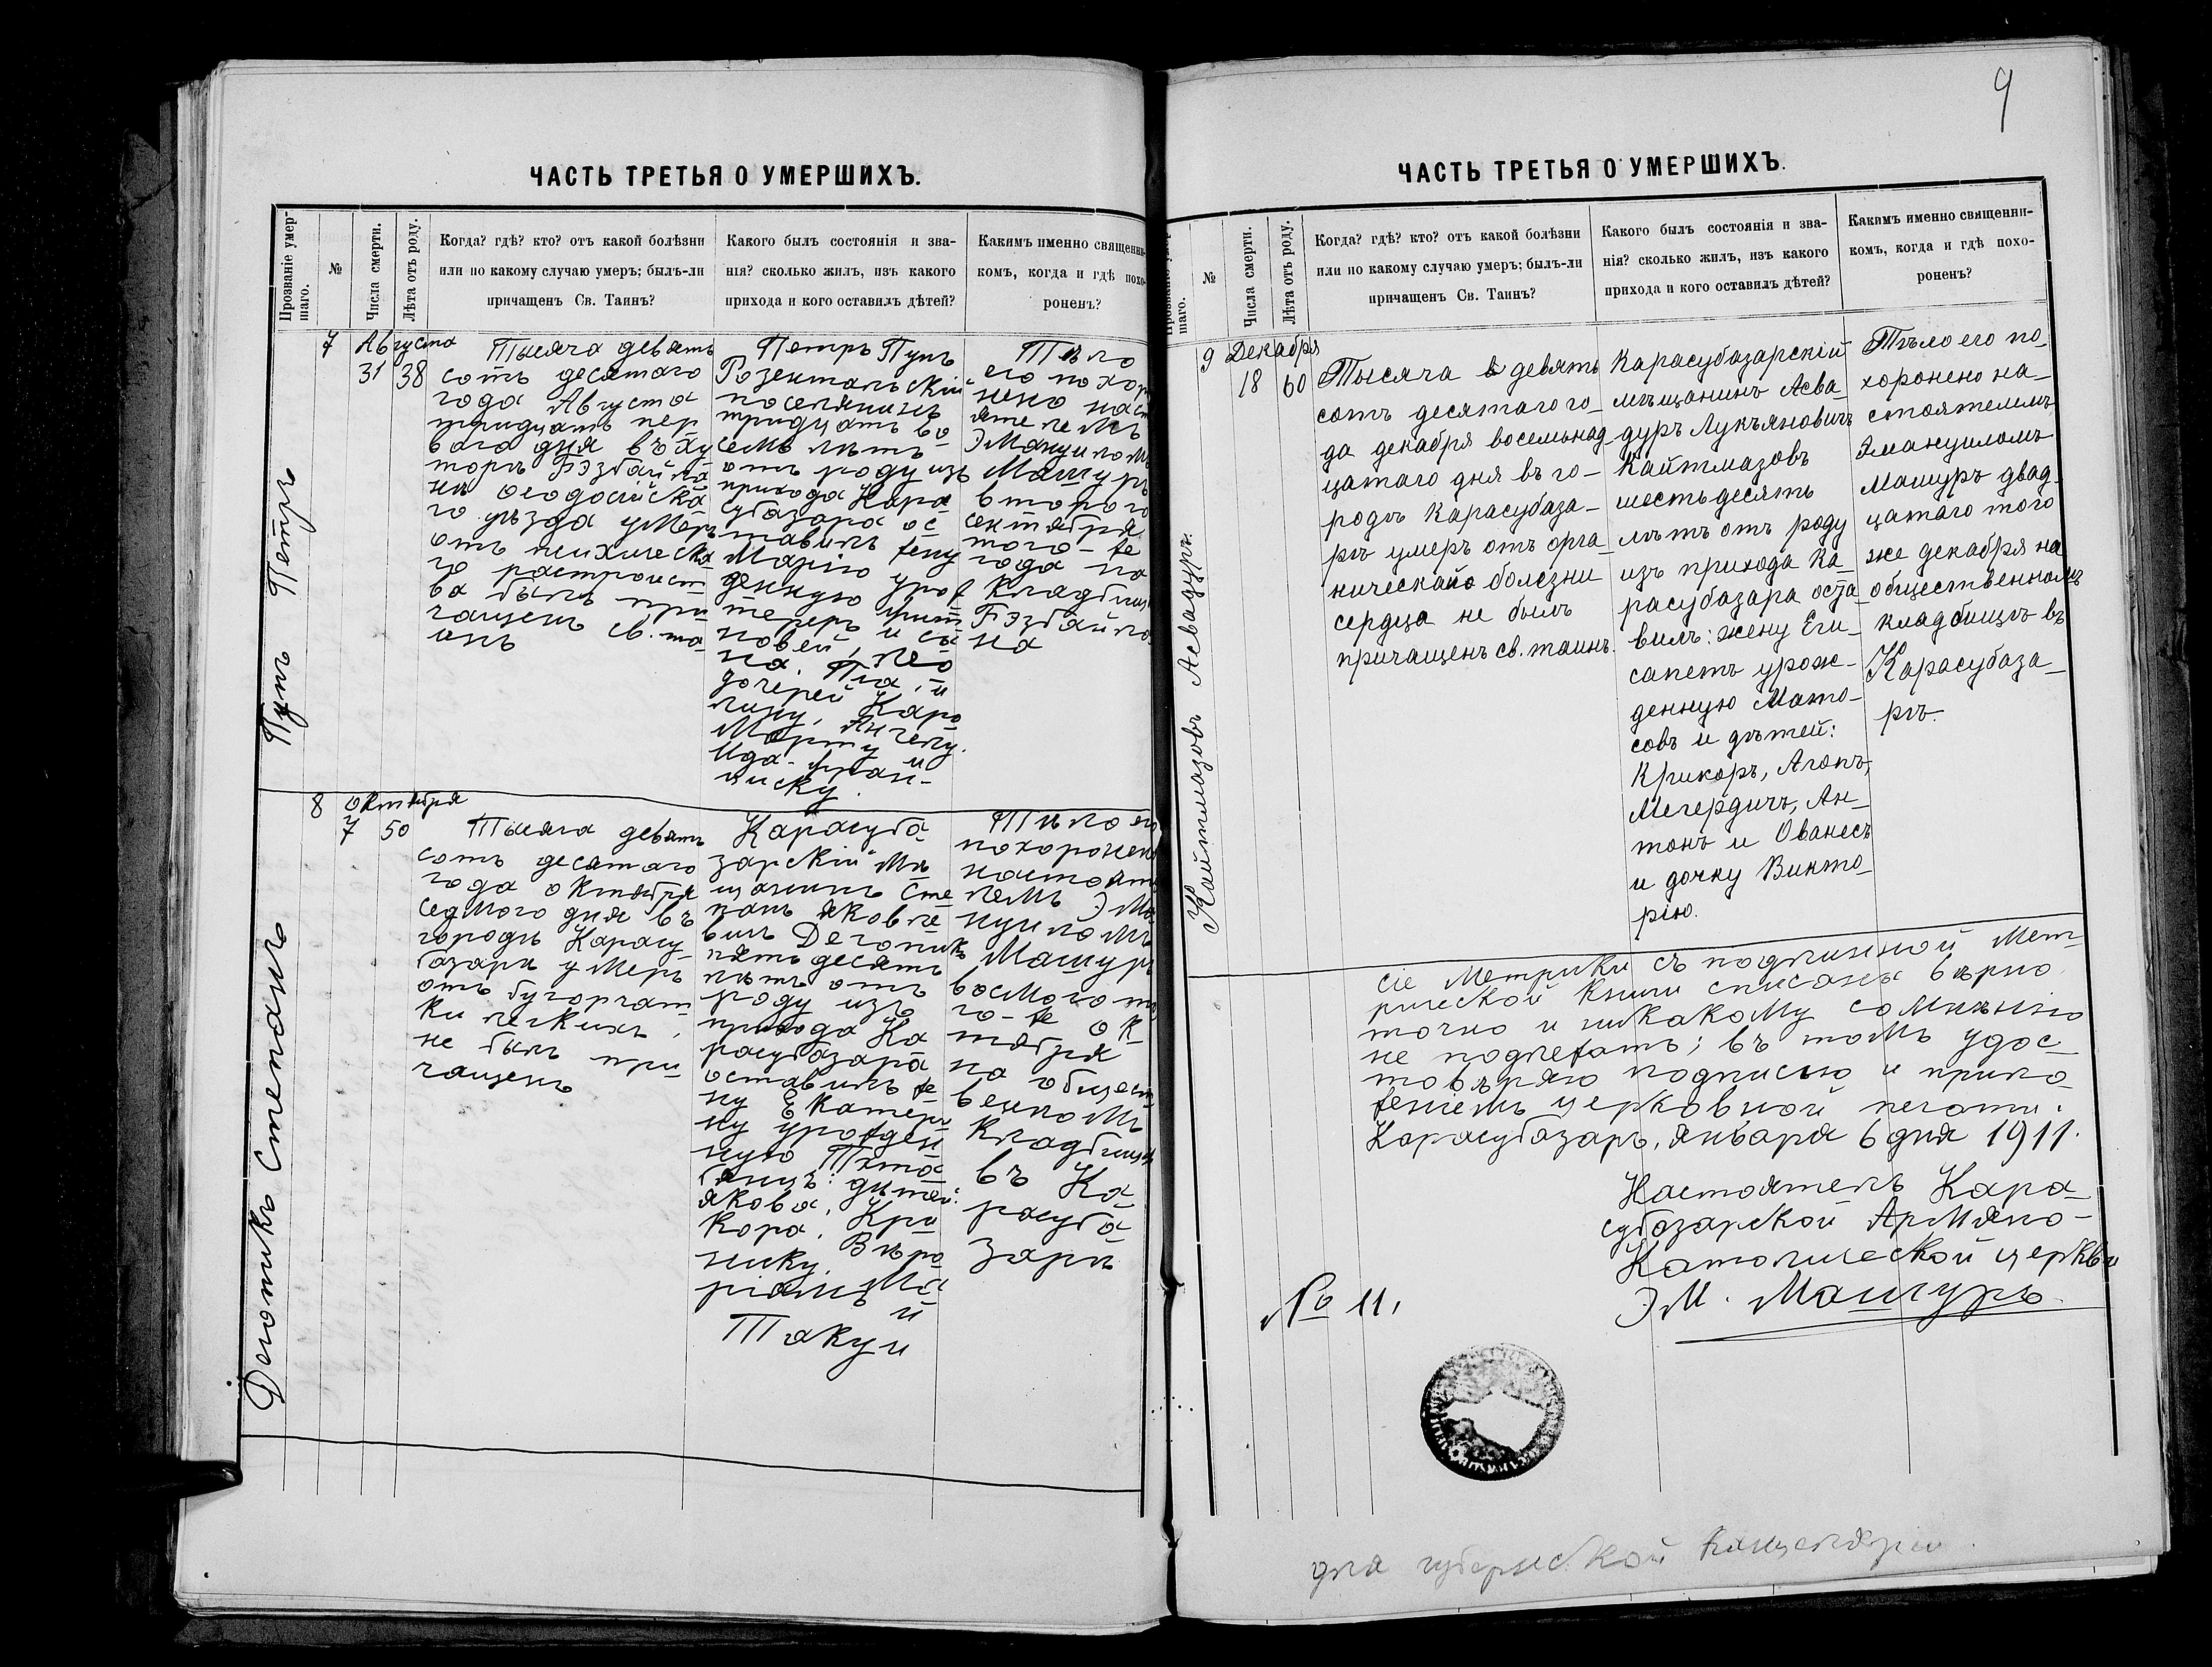 ЧАСТЬ ТРЕТЬЯ О УМЕРШИХЪ.
Прозваніе умер-
шаго.
№
Числа смерти.
Лѣта отъ роду.
Когда? гдѣ? кто? отъ какой болѣзни
или по какому случаю умеръ; былъ-ли
причащенъ Св. Таинъ?
Какого былъ состоянія и зва-
нія? сколько жилъ, изъ какого
прихода и кого оставилъ дѣтей?
Какимъ именно священни-
комъ, когда и гдѣ похо-
роненъ?
Пупъ Петръ
7
Августа
31
38
Тысяча девять
сотъ десятаго
года Августа
тридцать пер
ваго дня въ ху
торѣ Бэзбайла
нѣ Ѳеодосійска
го уѣзда умеръ
отъ психическа
го растройст
ва былъ при
чащенъ св. та
инъ
Петръ Пупъ
Розентальскій
поселянинъ
тридцать во
семь лѣтъ
отъ роду изъ
прихода Кара
субазара ос
тавилъ жену
Марію урож
денную
новей, и сы
на,
дочерей Каро
лину,
Марту Ангелу.
Ида. Фран-
циску.
Тѣло
его похоро
нено наст
ятелемъ
Эмануиломъ
Машуръ
второго
сентября
того-же
года на
кладбищѣ
Бэзбайла
на
Деготикъ Степанъ
8
Октября
7
50
Тысяча девять
сотъ десятаго
года октября
седмого дня въ
городѣ Карасу-
базарѣ умеръ
отъ бугорчат
ки легкихъ,
не былъ при
чащенъ
Карасуба
зарскій мѣ
щанинъ Сте
панъ Яковле
вичъ Деготикъ
пятьдесятъ
лѣтъ отъ
роду изъ
прихода Ка
расубазара
оставилъ же
ну Екатери
ну урожден
ную
дѣтей:
Якова, Кри
кора, Веро
нику,
Ма
ріамъ
и
Такуи
Тѣло его
похоронено
настояте
лемъ Эма
нуиломъ
Машуръ
восмого то
го-же ок
тября
на общест
венномъ
кладбищѣ
въ Ка
расуба
зарѣ
9
ЧАСТЬ ТРЕТЬЯ О УМЕРШИХЪ.
Прозваніе умер-
шаго.
№
Числа смерти.
Лѣта отъ роду.
Когда? гдѣ? кто? отъ какой болѣзни
или по какому случаю умеръ; былъ-ли
причащенъ Св. Таинъ?
Какого былъ состоянія и зва-
нія? сколько жилъ, изъ какого
прихода и кого оставилъ дѣтей?
Какимъ именно священни-
комъ, когда и гдѣ похо-
роненъ?
Кайтмазовъ Асвадуръ.
9
Декабря
18
60
Тысяча девять
сотъ десятаго го-
да декабря восемьнад
цатаго дня въ го-
родѣ Карасубаза-
рѣ умеръ отъ орга-
ническаго болезни
сердца не былъ
причащенъ св. таинъ.
Карасубазарскій
мѣщанинъ Асва-
дуръ Лукьяновичъ
Кайтмазовъ
шестьдесятъ
лѣтъ отъ роду
изъ прихода Ка-
расубазара оста-
вилъ: жену Еги-
сапетъ урож-
денную Мато-
совъ и дѣтей:
Крикоръ, Агопъ,
Мегердичъ, Ан-
тонъ и Ованесъ
и дочку Викто-
рію.
Тѣло его по-
хоронено на-
стоятелемъ
Эмануиломъ
Машуръ двад-
цатаго того
же декабря на
общественномъ
кладбищѣ въ
Карасубаза-
рѣ.
Сіе Метрики съ подлинной Мет-
рической книги списана вѣрно
точно и никакому сомнѣнію
не подлежатъ; въ томъ удос-
товѣряю подписью и прило
женіемъ церковной печати.
Карасубазаръ, Января 6 дня 1911.
Настоятель Кара-
субазарской Армяно-
Католической церкви
Эм. Машуръ
№ 11.
для губернской канцеляріи.